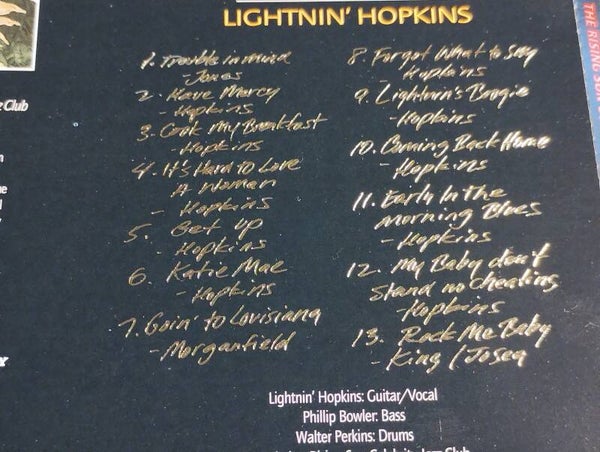 LIGHTNIN' HOPKINS
1. Trouble in mind
- Jones
2. Have Mercy
- Hopkins
3. Cook My Breakfast
- Hopkins
4. It's Hard to Love
A Woman
- Hopkins
5. Get up
- Hopkins
6. Katie Mae
- Hopkins
7. Goin' to Louisiana
- Morganfield
8. Forgot What to Say
- Hopkins
9. Lightnin's Boogie
- Hopkins
10. Coming Back Home
- Hopkins
11. Early In the
Morning Blues
- Hopkins
12. My Baby don't
stand no cheating
- Hopkins
13. Rock Me Baby
- King / Josea
Lightnin' Hopkins: Guitar/Vocal
Phillip Bowler: Bass
Walter Perkins: Drums
Club
THE RISING SUN